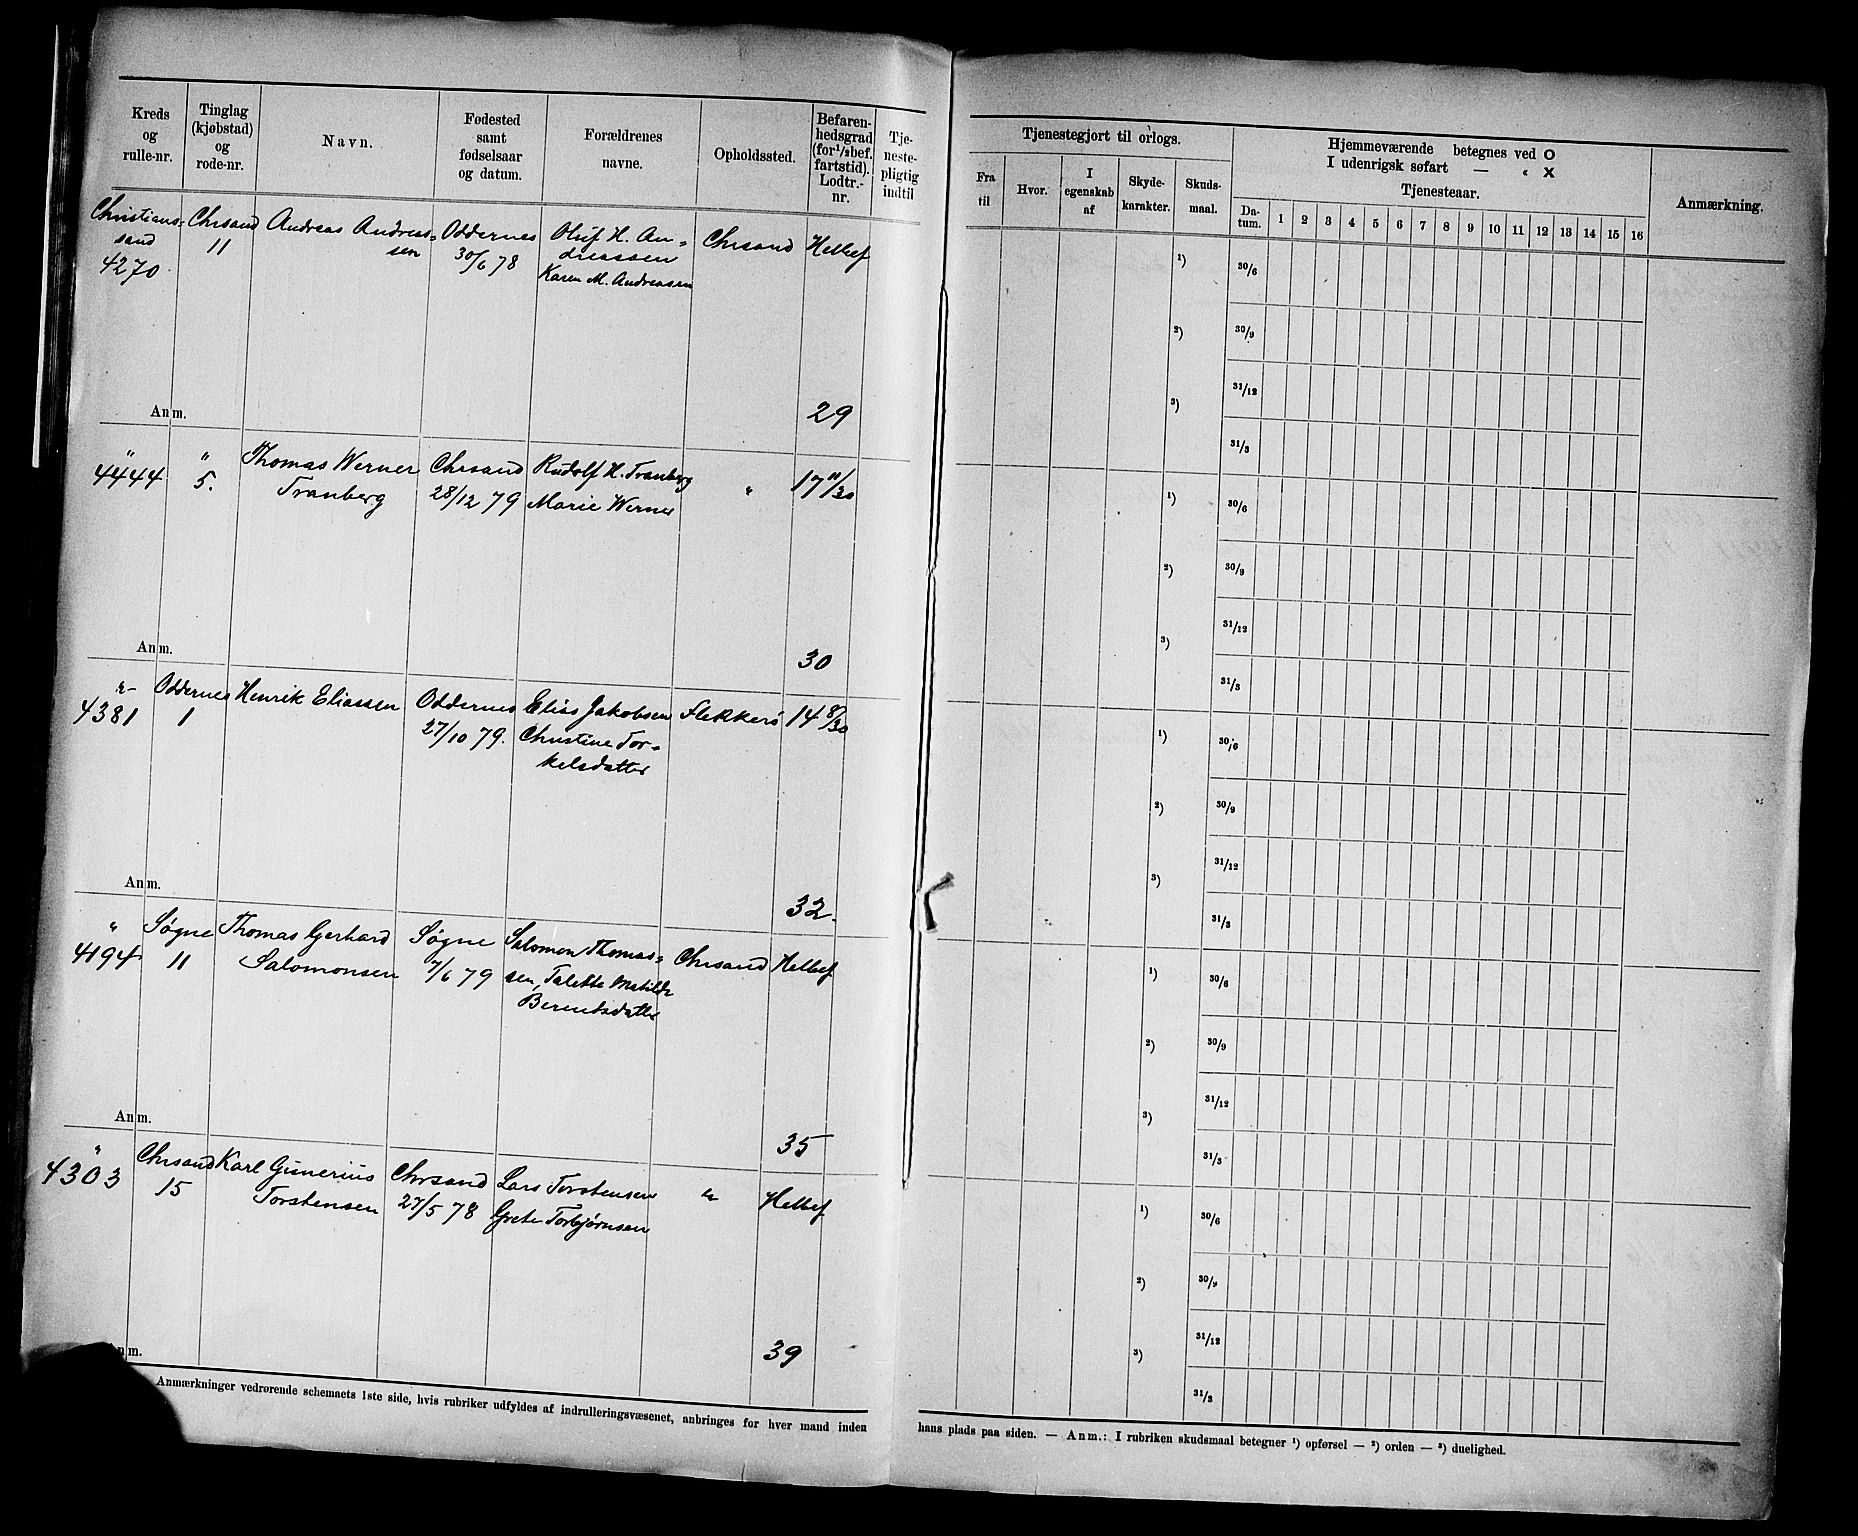 Kreds og rulle-nr.
Tinglag (kjøbstad) og rode-nr.
Navn.
Fødested samt fødselsaar og datum.
Forældrenes navne.
Opholdssted.
Befaren-hedsgrad (for 1/2 bef. fartstid). Lodtr.-nr.
Tje-neste-pligtig indtil
Tjenestegjort til orlogs.
Fra til
Hvor.
I egenskab af
Skyde-karakter.
Skuds-maal.
Hjemmeværende betegnes ved O
I udenrigsk søfart — " X
Tjenesteaar.
Da-tum. 1 2 3 4 5 6 7 8 9 10 11 12 13 14 15 16
Anmærkning.
Christians-
sand
4270
Chrsand
11
Andreas Andreas-
sen
Oddernes
30/6 78
Oluf H. An-
dreassen
Karen M. Andreassen
Chrsand
Helbef
29
Anm.
1) 2) 3)
30/6
30/9
31/12
31/3
"
4444
"
5.
Thomas Werner
Tranberg
Chrsand
28/12 79
Rudolf H. Tranberg
Marie Werner
"
17 11/30
30
Anm.
1) 2) 3)
30/6
30/9
31/12
31/3
"
4381
Oddernes
1
Henrik Eliassen
Oddernes
27/10 79.
Elias Jakobsen
Christine Tor-
kelsdatter
Flekkerø
14 8/30
32.
Anm.
1) 2) 3)
30/6
30/9
31/12
31/3
"
4194
Søgne
11
Thomas Gerhard
Salomonsen
Søgne
7/6 79
Salomon Thomas-
sen, Talette Matilde
Berentsdatter
Chrsand
Helbef
35
Anm.
1) 2) 3)
30/6
30/9
31/12
31/3
"
4303
Chrsand
15
Karl Gunerius
Torstensen
Chrsand
27/5 78
Lars Torstensen
Grete Torbjørnsen
"
Helbef
39
nm.
1) 2) 3)
30/6
30/9
31/12
31/3
Anmærkninger vedrørende schemaets 1ste side, hvis rubriker udfyldes af indrulleringsvæsenet, anbringes for hver mand inden
hans plads paa siden. — Anm.: I rubriken skudsmaal betegner 1) opførsel — 2) orden — 3) duelighed.